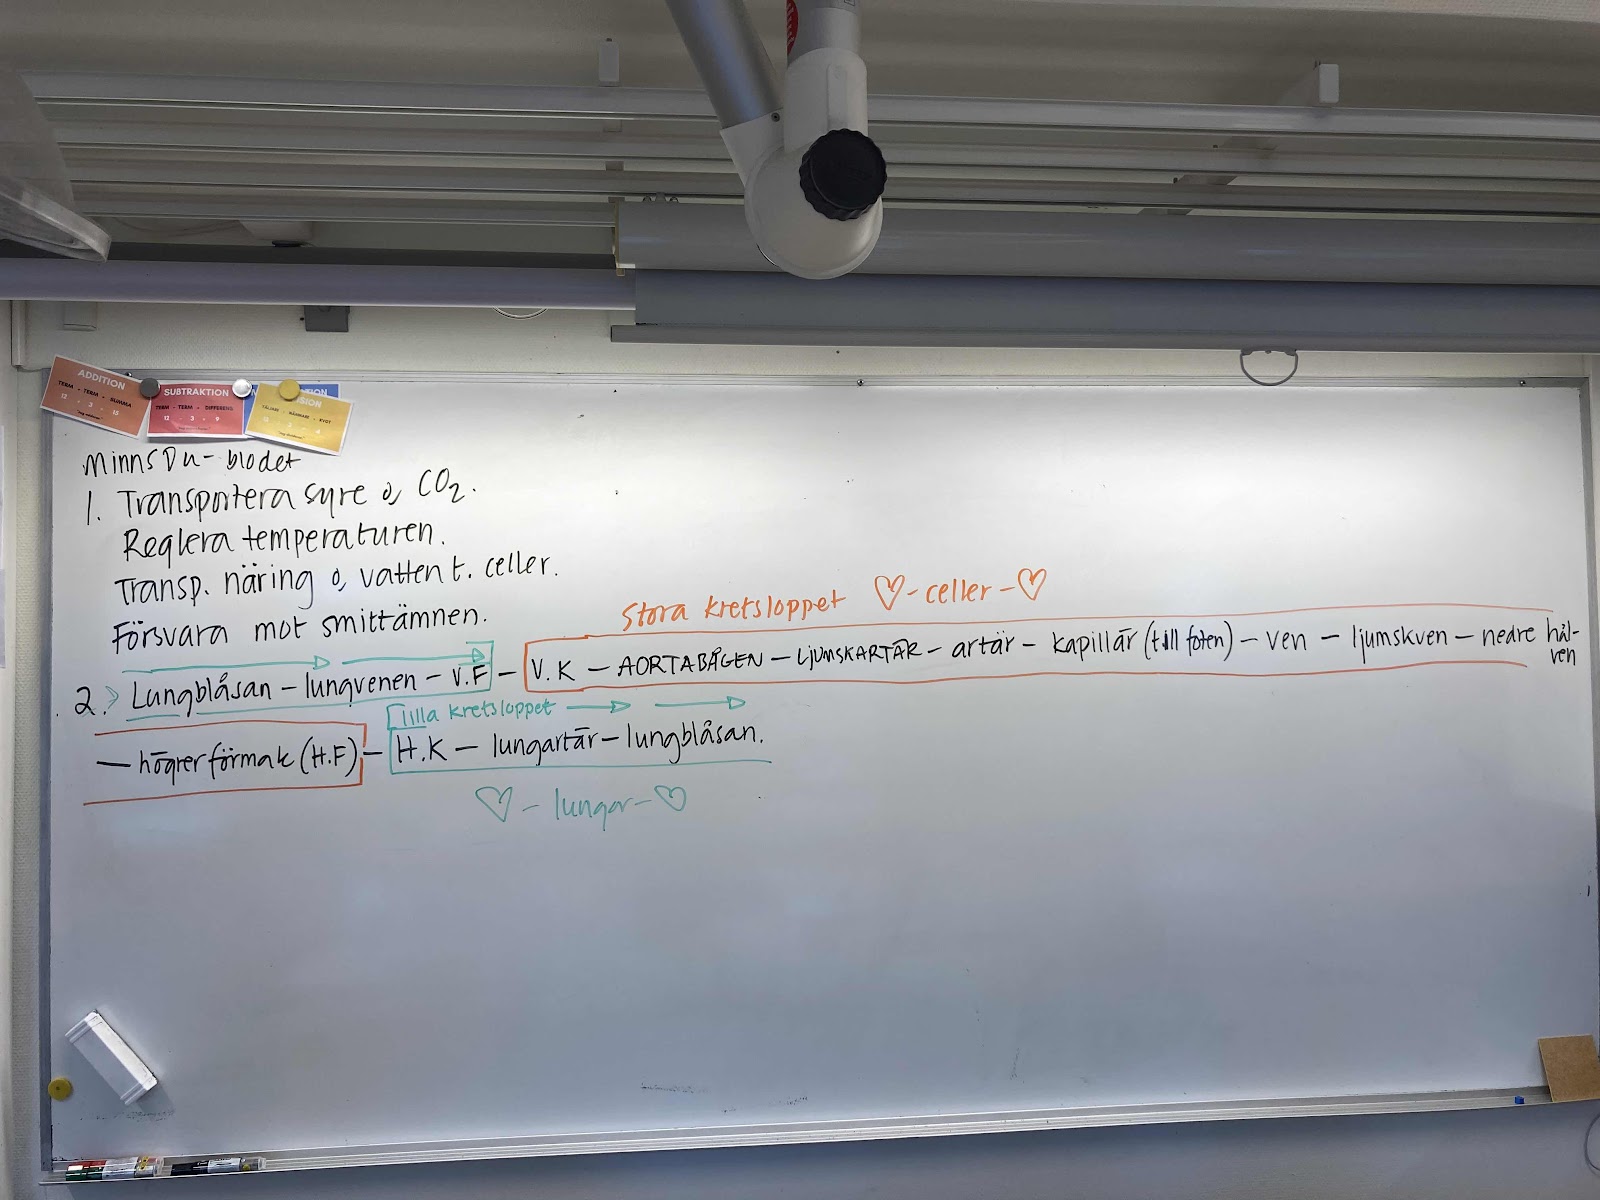 ADDITION
TERM + TERM = SUMMA
12 + 3 = 15
SUBTRAKTION
TERM - TERM = DIFFERENS
12 - 3 = 9
TÄLJARE ÷ NÄMNARE = KVOT
Minns Du - blodet
1. Transportera syre o, CO2.
Reglera temperaturen.
Transp. näring o, vatten t. celler.
Försvara mot smittämnen.
Stora kretsloppet ♡ - celler - ♡
2. > Lungblåsan - lungvenen - V.F - V.K - AORTABÅGEN - LJUMSKARTÄR - artär - kapillär (till foten) - ven - ljumskven - nedre hål-
ven
lilla kretsloppet → →
- högrer förmak (H.F) - H.K - lungartär - lungblåsan.
♡ - lungor - ♡